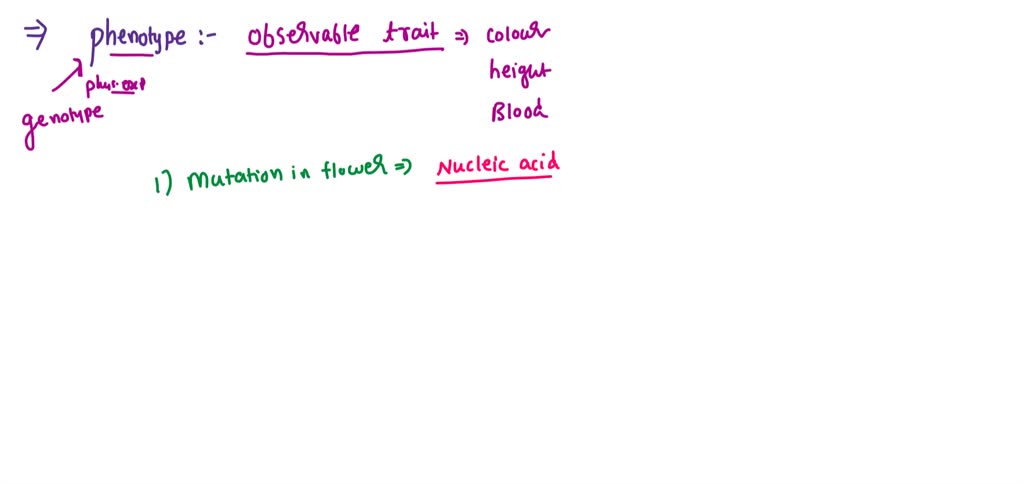 ⇒ phenotype :- observable trait ⇒ colour
height
genotype
Blood
1) Mutation in flower ⇒ Nucleic acid